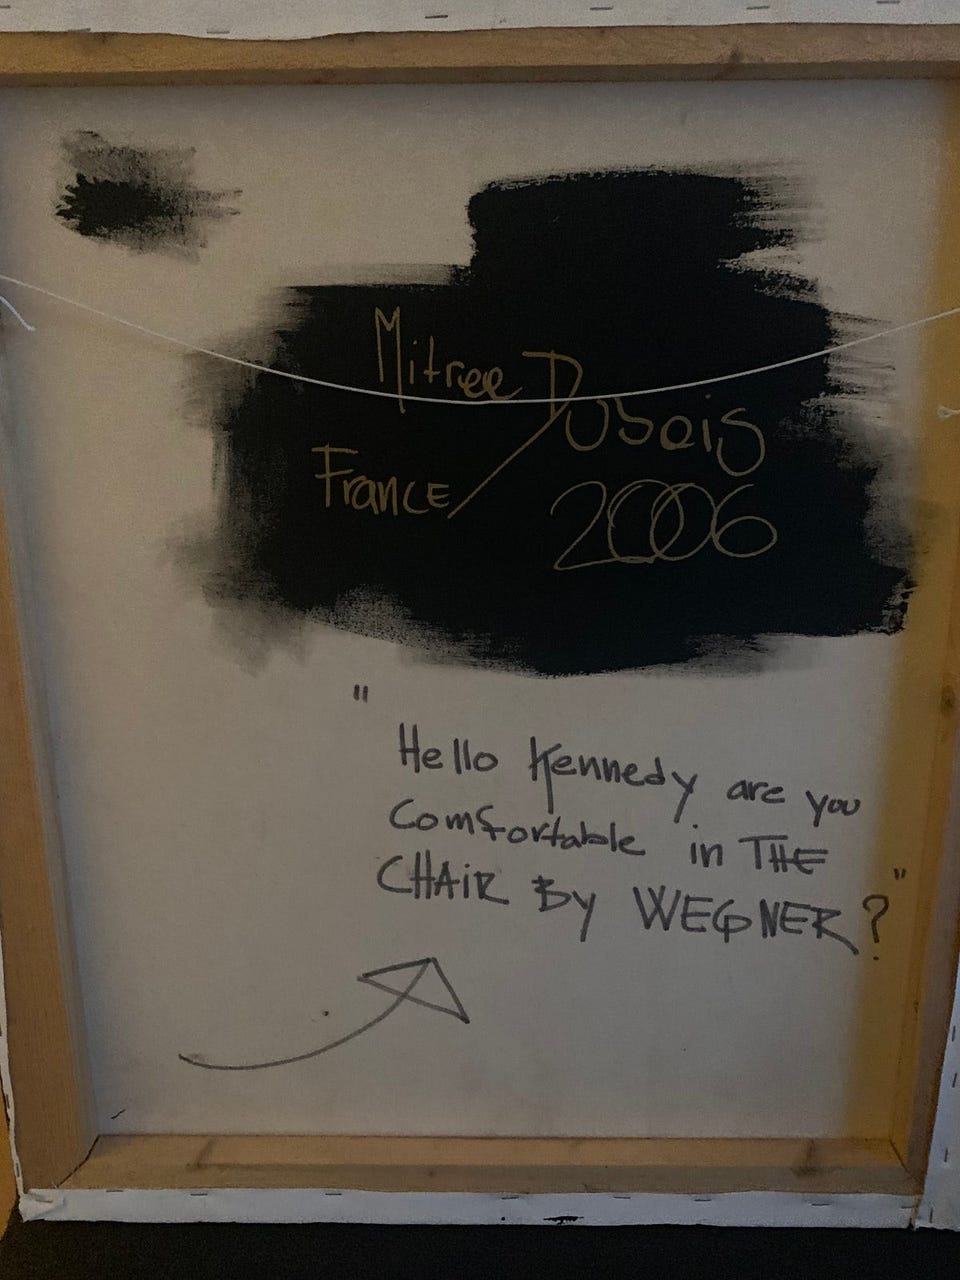 Mitree Dubois
France
2006
"Hello Kennedy are you
comfortable in THE
CHAIR By WEGNER?"